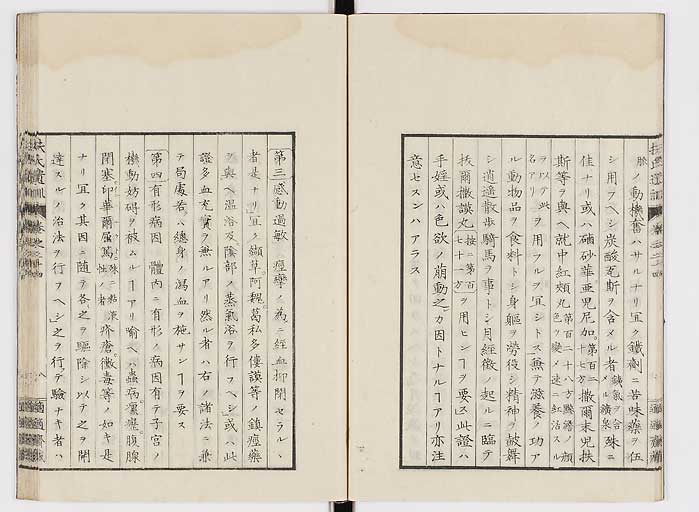 脉ノ動機奮ハサルナリ宜ク鐵劑ニ苦味藥ヲ伍
シ用フヘシ炭酸瓦斯ヲ含メル者鐵氣ヲ含メル鑛泉殊ニ
佳ナリ或ハ硇砂華亜兒尼加第百三十七方撒爾末兒扶
斯等ヲ與ヘ就中紅頬丸第百二十八方黯繆ノ顔色ヲ變メ速ニ紅活スル
ヲ以テ此名アリヲ用フルヲ宜シトス無テ滋養ノ功ア
ル動物品ヲ食料トシ身軀ヲ勞役シ精神ヲ鼓舞
シ逍遥散歩騎馬ヲ事トシ月經徴ノ起ルニ臨テ
扶爾撒謨丸按ニ第百七十一方ヲ用ヒンヿヲ要ス此證ハ
手婬或ハ色欲ノ萠動之カ因トナルヿアリ亦注
意セスンハアラス
第三感動過敏 痙攣ノ為ニ經血抑閉セラルヽ
者是ナリ宜ク纈草阿魏葛私多僂謨等ノ鎮痙藥
ヲ與ヘ温浴及陰部ノ蒸氣浴ヲ行フヘシ或ハ此
證多血充實ヲ無ルアリ然ル者ハ右ノ諸法ニ兼
テ局處若ハ總身ノ瀉血ヲ施サンヿヲ要ス
第四有形病因 體內ニ有形ノ病因有テ子宮ノ
機動妨碍ヲ被ムルヿアリ喩ヘハ蟲病瘰癧腹腺
閉塞卬華爾屈篤殊ニ黏液性ノ者疥瘡黴毒等ノ如キ是
ナリ宜ク其因ニ隨テ各之ヲ驅除シ以テ之ヲ開
達スルノ治法ヲ行フヘシ之ヲ行テ驗ナキ者ハ
扶氏遺訓
八
適適齋藏